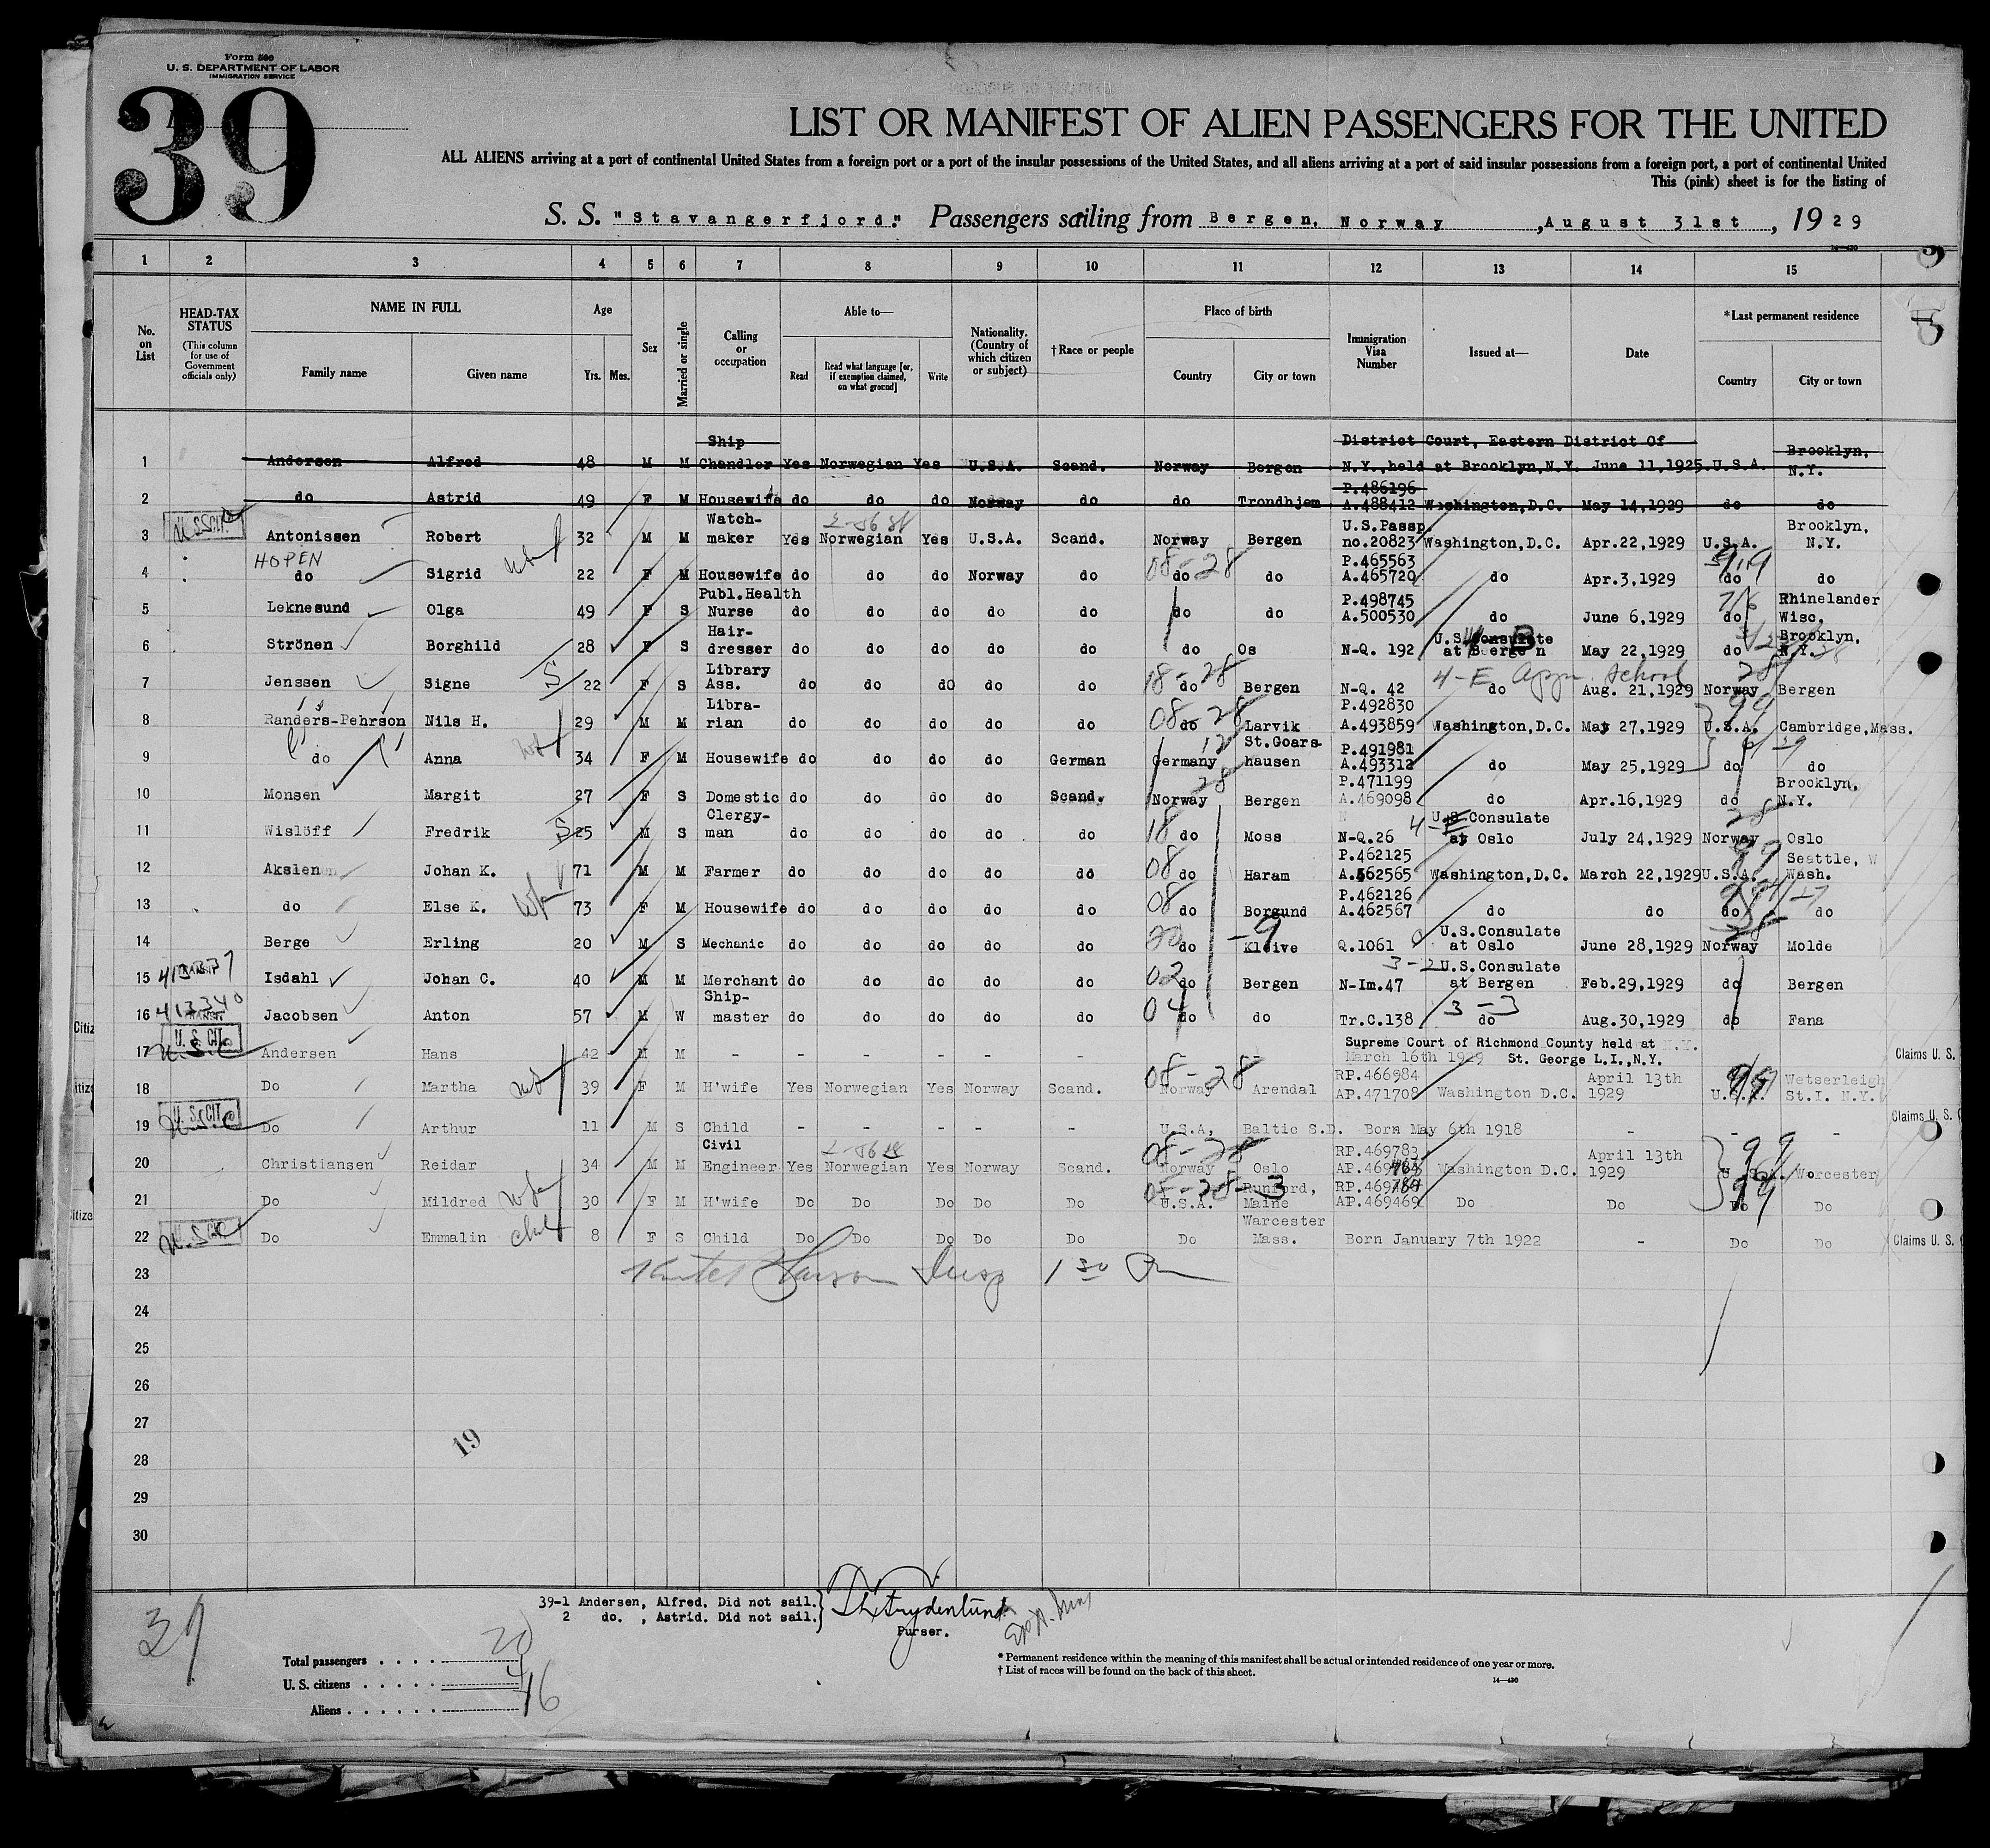 Form 500
U. S. DEPARTMENT OF LABOR
IMMIGRATION SERVICE
39
LIST OR MANIFEST OF ALIEN PASSENGERS FOR THE UNITED
ALL ALIENS arriving at a port of continental United States from a foreign port or a port of the insular possessions of the United States, and all aliens arriving at a port of said insular possessions from a foreign port, a port of continental United
This (pink) sheet is for the listing of
S. S. "Stavangerfjord." Passengers sailing from Bergen, Norway, August 31st, 1929
14—430
1 2 3 4 5 6 7 8 9 10 11 12 13 14 15
No. on List
HEAD-TAX STATUS (This column for use of Government officials only)
NAME IN FULL Family name Given name
Age Yrs. Mos.
Sex
Married or single
Calling or occupation
Able to— Read Read what language [or, if exemption claimed, on what ground] Write
Nationality. (Country of which citizen or subject)
†Race or people
Place of birth Country City or town
Immigration Visa Number
Issued at—
Date
*Last permanent residence Country City or town
1 Anderson Alfred 48 M M Ship Chandler Yes Norwegian Yes U.S.A. Scand. Norway Bergen District Court, Eastern District Of N.Y., held at Brooklyn, N.Y. June 11, 1925. U.S.A. Brooklyn, N.Y.
2 do Astrid 49 F M Housewife do do do Norway do do Trondhjem P.486196 A.488412 Washington, D.C. May 14, 1929 do do
3 U.S.CIT. Antonissen Robert 32 M M Watch-maker Yes Norwegian Yes U.S.A. Scand. Norway Bergen U.S.Passp. no.20823 Washington, D.C. Apr.22, 1929 U.S.A. Brooklyn, N.Y.
HOPEN
4 do Sigrid 22 F M Housewife do do do Norway do do do P.465563 A.465720 do Apr.3, 1929 do do 08-28
5 Leknesund Olga 49 F S Publ.Health Nurse do do do do do do do P.498745 A.500530 do June 6, 1929 do Rhinelander Wisc.
6 Strönen Borghild 28 F S Hair-dresser do do do do do do Os N-Q. 192 U.S.Consulate at Bergen May 22, 1929 do Brooklyn, N.Y.
7 Jenssen Signe S 22 F S Library Ass. do do do do do 18-28 do Bergen N-Q. 42 4-E do Aug. 21, 1929 Norway Bergen
8 Randers-Pehrson Nils H. 29 M M Libra-rian do do do do do 08-28 do Larvik P.492830 A.493859 Washington, D.C. May 27, 1929 U.S.A. Cambridge, Mass.
9 do Anna 34 F M Housewife do do do do German Germany St.Goars-hausen P.491981 A.493312 do May 25, 1929 do do
10 Monsen Margit 27 F S Domestic do do do do Scand. Norway Bergen P.471199 A.469098 do Apr.16, 1929 do Brooklyn, N.Y.
11 Wislöff Fredrik S 25 M S Clergy-man do do do do do 18 do Moss N-Q.26 U.S.Consulate at Oslo July 24, 1929 Norway Oslo
12 Akslen Johan K. 71 M M Farmer do do do do do 08 do Haram P.462125 A.562565 Washington, D.C. March 22, 1929 U.S.A. Seattle, Wash.
13 do Else K. 73 F M Housewife do do do do do 08 do Borgund P.462126 A.462567 do do do do
14 Berge Erling 20 M S Mechanic do do do do do 20 do -9 Kleive Q.1061 U.S.Consulate at Oslo June 28, 1929 Norway Molde
15 413337 Isdahl Johan C. 40 M M Merchant do do do do do 02 do Bergen N-Im.47 3-2 U.S.Consulate at Bergen Feb.29, 1929 do Bergen
16 413340 TRANSIT Jacobsen Anton 57 M W Ship-master do do do do do 04 do do Tr.C.138 3-3 do Aug.30, 1929 do Fana
17 U.S.CIT. Andersen Hans 42 M M - - - - - - - Supreme Court of Richmond County held at N.Y. March 16th 1929 St. George L.I., N.Y. Claims U. S.
18 Do Martha 39 F M H'wife Yes Norwegian Yes Norway Scand. 08-28 Norway Arendal RP.466984 AP.471708 Washington D.C. April 13th 1929 U.S.A. Wetserleigh St.I. N.Y.
19 U.S.CIT. Do Arthur 11 M S Child - - - - - U.S.A, Baltic S.D. Born May 6th 1918 - - - Claims U. S.
20 Christiansen Reidar 34 M M Civil Engineer Yes Norwegian Yes Norway Scand. 08-28 Norway Oslo RP.469783 Washington D.C. April 13th 1929 U.S.A. Worcester
21 Do Mildred 30 F M H'wife Do Do Do Do Do U.S.A. Rumford, Maine AP.469469 Do Do Do Do
22 U.S.CIT. Do Emmalin 8 F S Child Do Do Do Do Do Do Warcester Mass. Born January 7th 1922 - Do Do Claims U. S.
23 1 30 Pm
24
25
26
27
28
29
30
19
39-1 Andersen, Alfred. Did not sail.
2 do. , Astrid. Did not sail.
Purser.
39
Total passengers 20
U. S. citizens 4
Aliens 16
* Permanent residence within the meaning of this manifest shall be actual or intended residence of one year or more.
† List of races will be found on the back of this sheet.
14—430